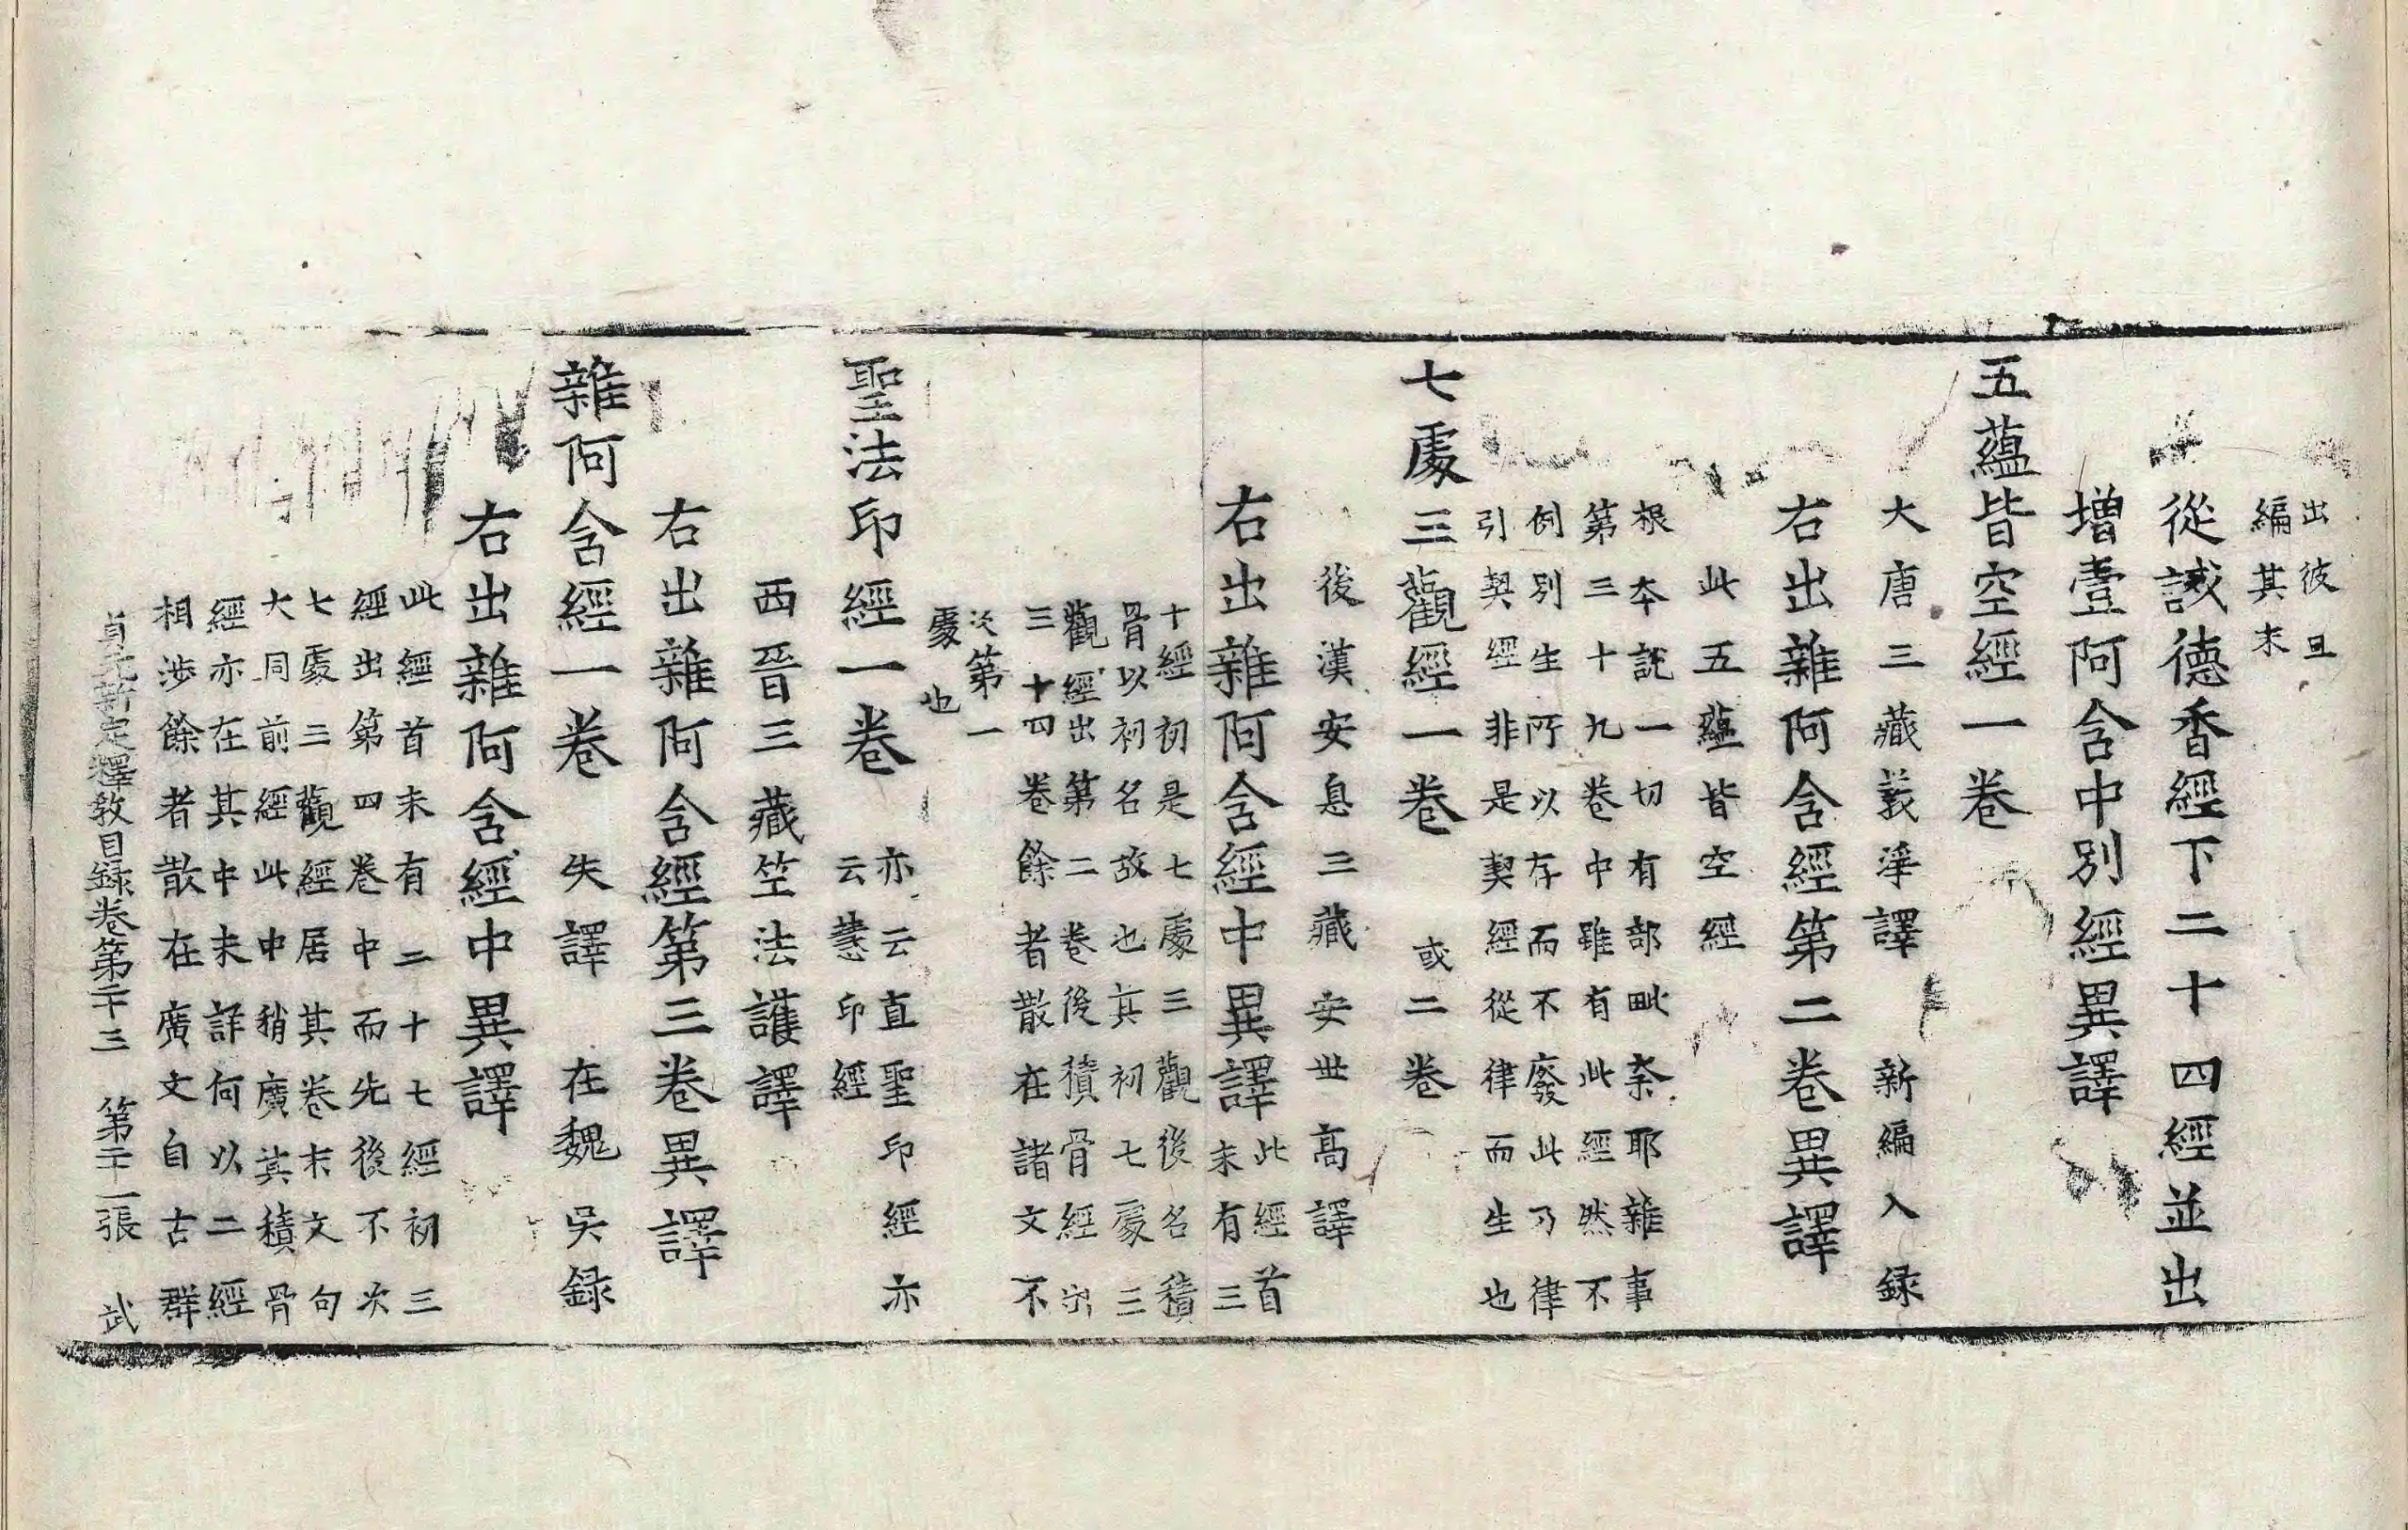 出彼且
編其末
從誡德香經下二十四經並出
增壹阿含中別經異譯
五蘊皆空經一卷
大唐三藏義淨譯 新編入録
右出雜阿含經第二卷異譯
此五蘊皆空經
根本說一切有部毗柰耶雜事
第三十九卷中雖有此經然不
例別生所以存而不廢此乃律
引契經非是契經從律而生也
七處三觀經一卷 或二卷
後漢安息三藏安世高譯
右出雜阿含經中異譯 此經首
末有三
十經初是七處三觀後名積
骨以初名故也其初七處三
觀經出第二卷後積骨經出
三十四卷餘者散在諸文不
次第一
處也
聖法印經一卷 亦云直聖印經亦
云慧印經
西晉三藏竺法護譯
右出雜阿含經第三卷異譯
雜阿含經一卷 失譯 在魏吳録
右出雜阿含經中異譯
此經首末有二十七經初三
經出第四卷中而先後不次
七處三觀經居其卷末文句
大同前經此中稍廣其積骨
經亦在其中未詳何以二經
相涉餘者散在廣文自古群
貞元新定釋教目録卷第二十三 第二十一張 武